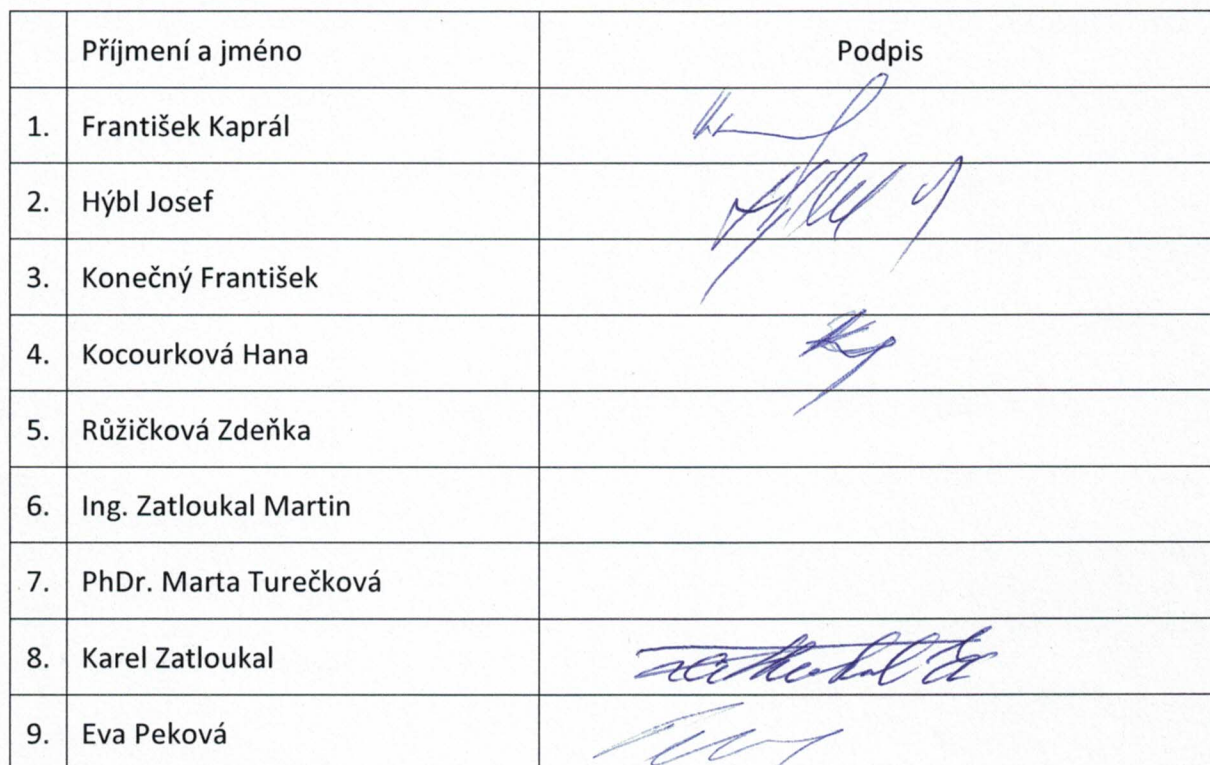 Příjmení a jméno Podpis
1. František Kaprál
2. Hýbl Josef
3. Konečný František
4. Kocourková Hana
5. Růžičková Zdeňka
6. Ing. Zatloukal Martin
7. PhDr. Marta Turečková
8. Karel Zatloukal
9. Eva Peková